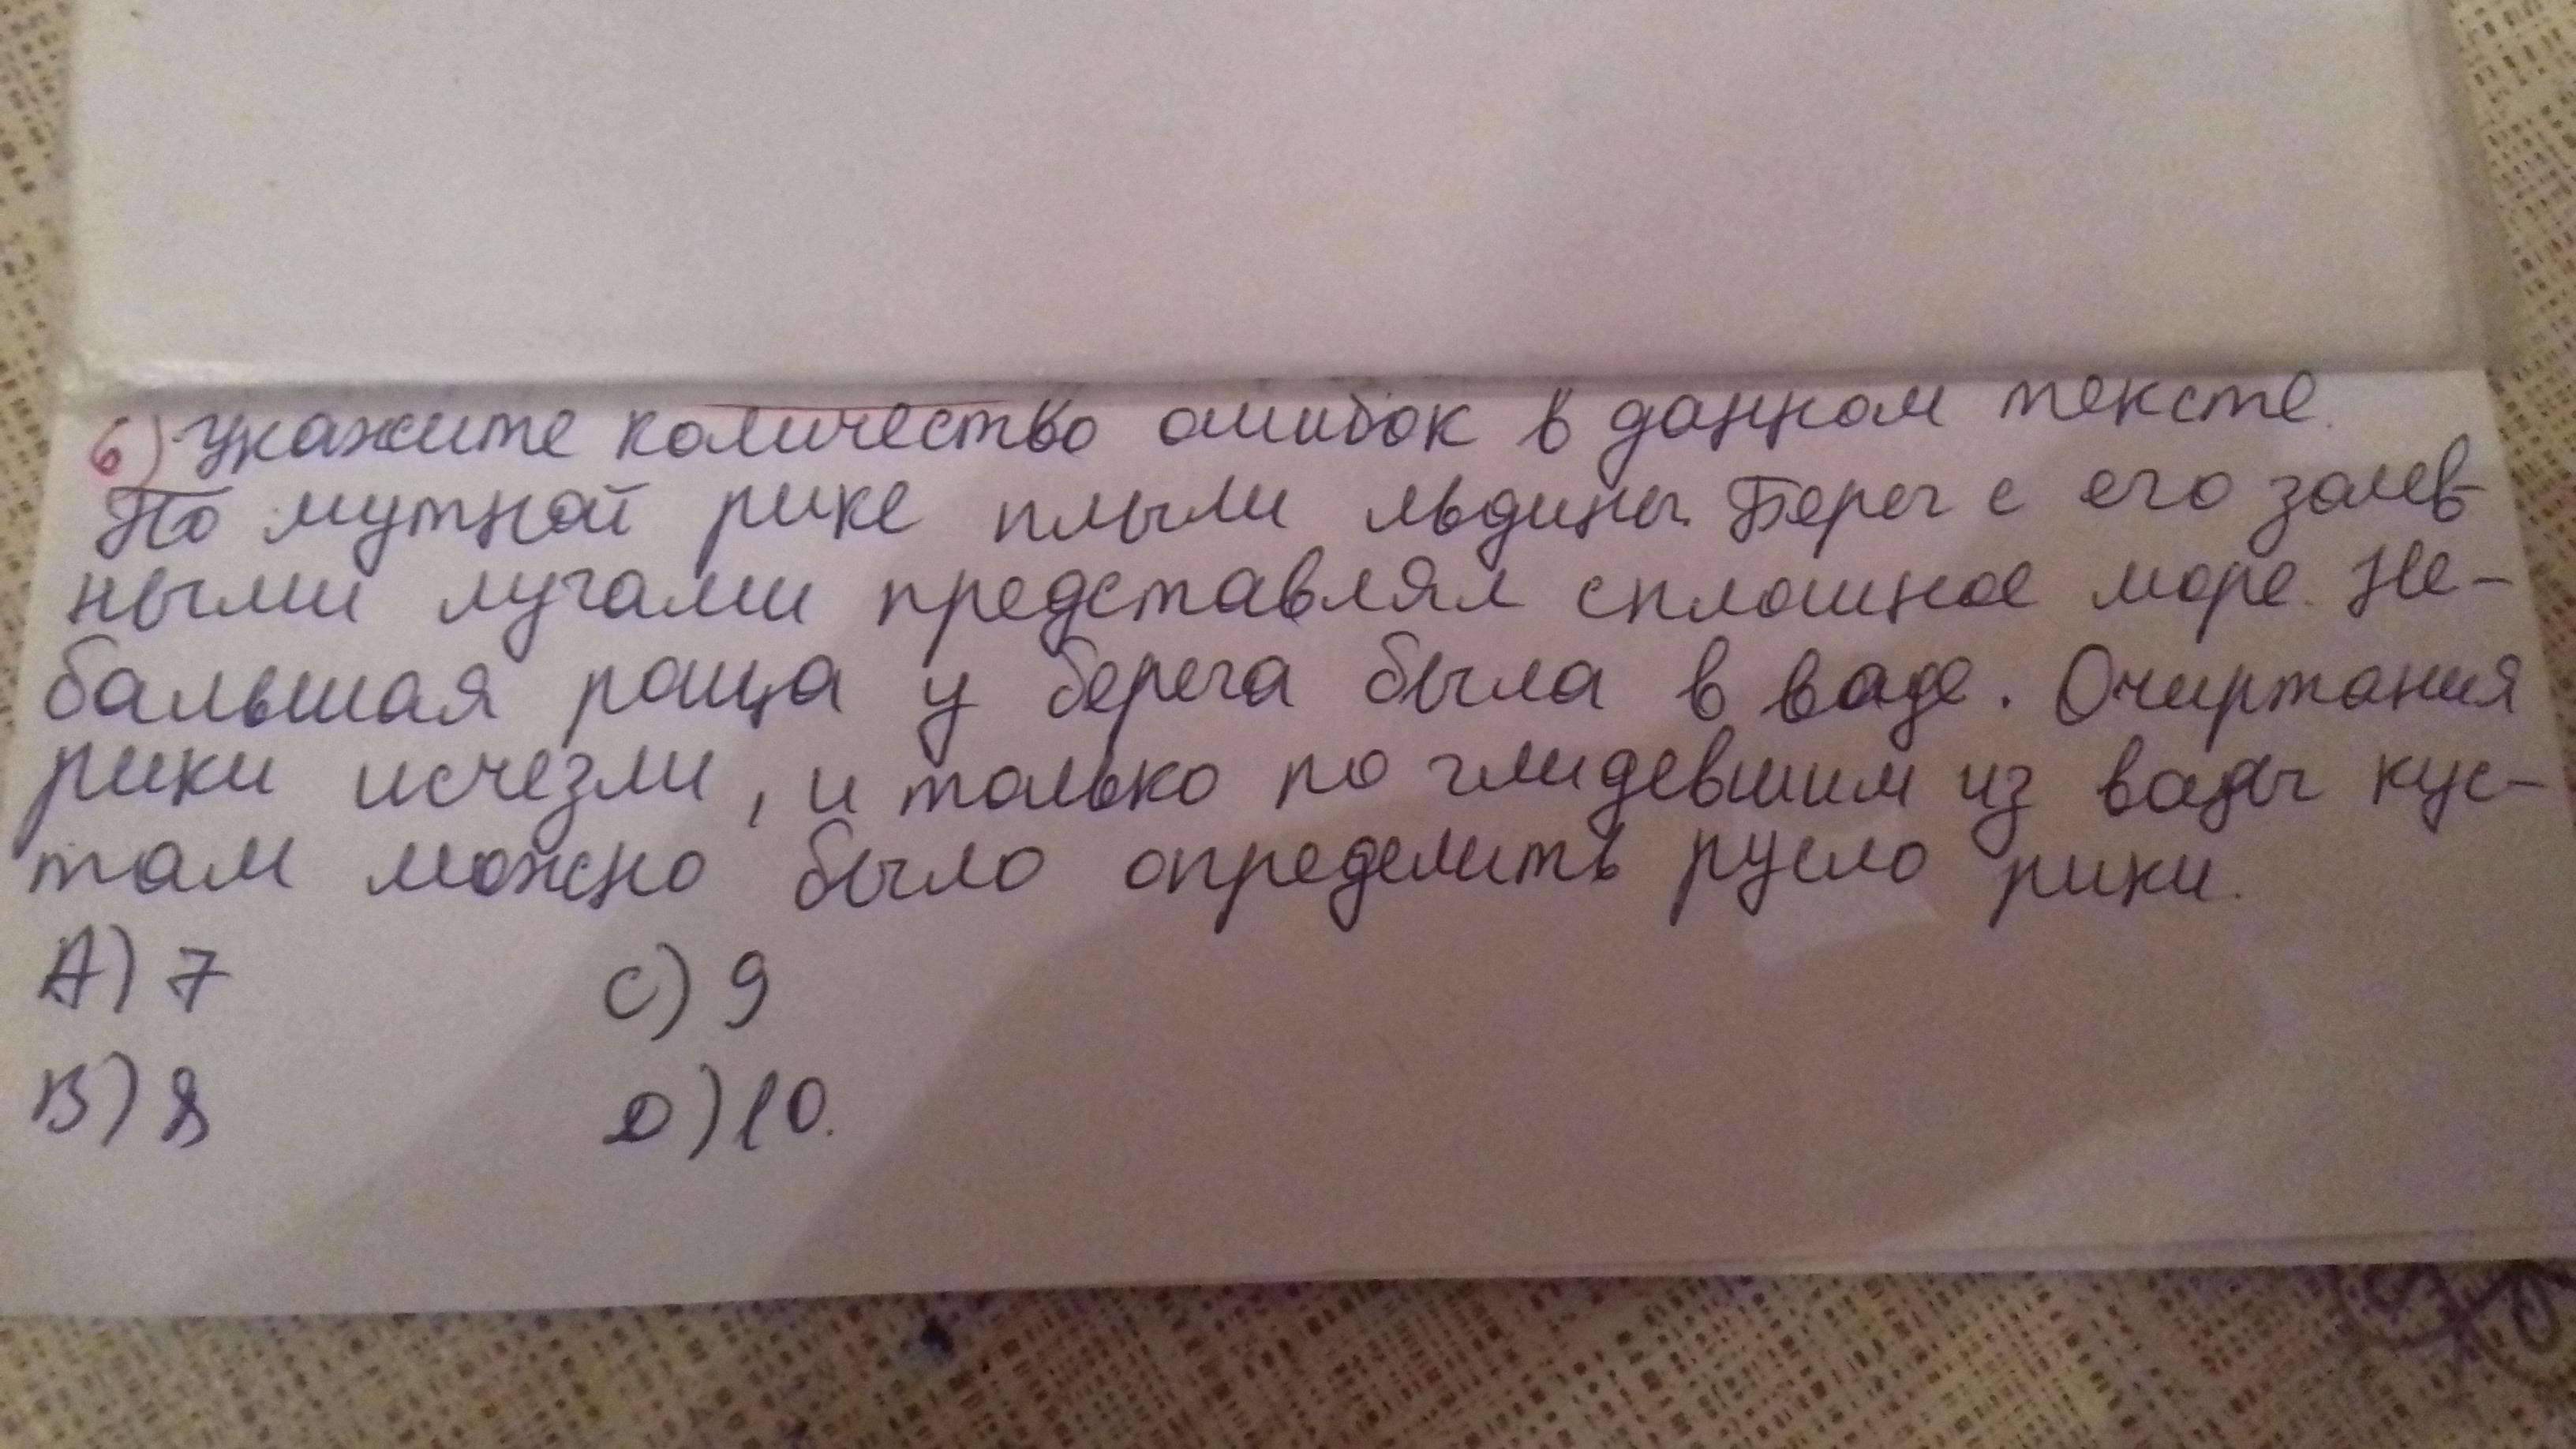 6) Укажите количество ошибок в данном тексте.
По мутной рике плыли льдины. Берег с его залев-
ными лугами представлял сплошное море. Не-
бальшая роща у берега была в ваде. Очиртания
рики исчезли, и только по глидевшим из вады кус-
там можно было определить русло рики.
А) 7 С) 9
В) 8 D) 10.